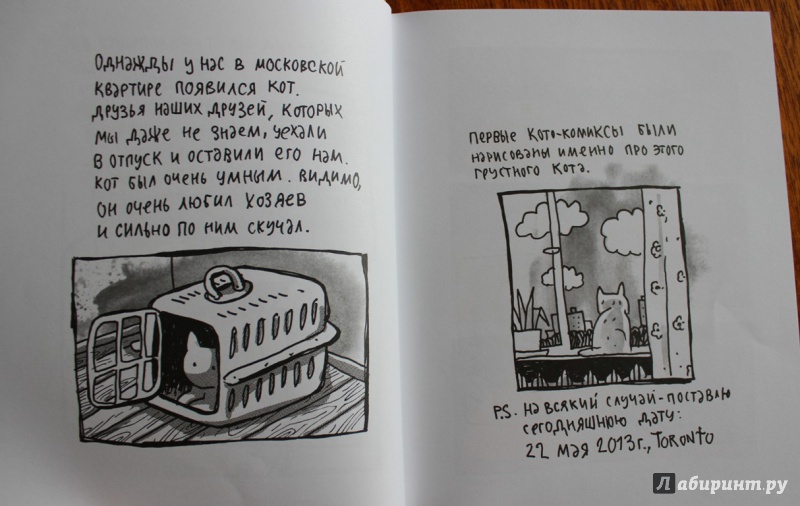 Однажды у нас в московской
квартире появился кот.
Друзья наших друзей, которых
мы даже не знаем, уехали
в отпуск и оставили его нам.
Кот был очень умным. Видимо,
он очень любил хозяев
и сильно по ним скучал.
Первые кото-комиксы были
нарисованы именно про этого
грустного кота.
P.S. На всякий случай-поставлю
сегодняшнюю дату:
22 мая 2013г., Toronto
Лабиринт.ру